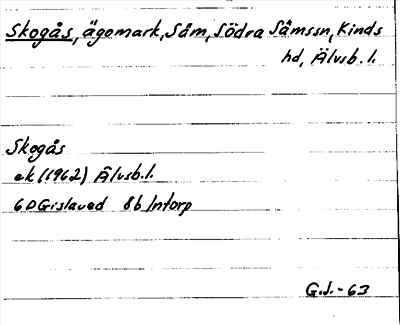 Skogås, ägomark, Såm, Södra Såmssn, Kinds
hd, Älvsb. l.
Skogås
ek (1962) Älvsb. l.
6D Gislaved 8b Intorp
G.J. - 63